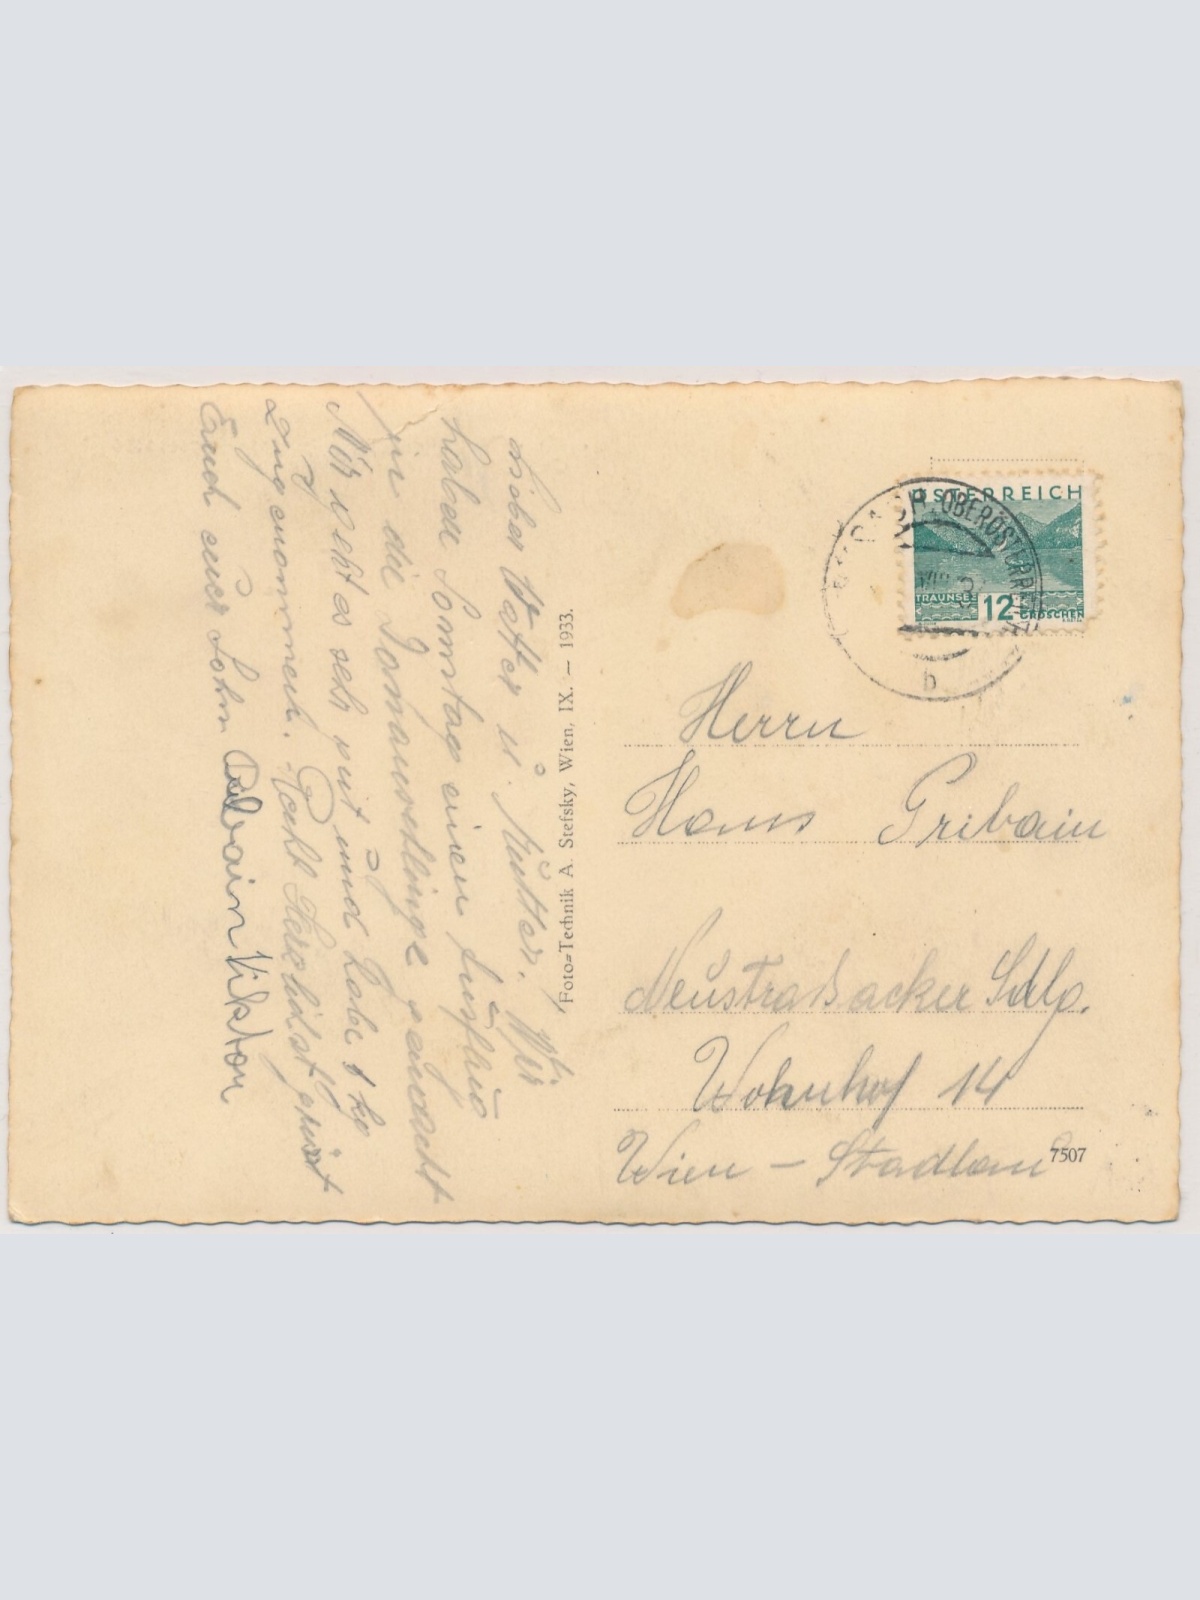 Lieber Vatter u. Mütter. Wir
haben Sonntag einen Ausflug
in die gemacht
Mir geht es sehr gut und habe 1 kg
zugenommen. Recht herzlichst grüst
Euch euer Sohn Viktor
Foto=Technik A. Stefsky, Wien, IX. – 1933.
ÖSTERREICH
TRAUNSEE 12 GROSCHEN
OBERÖSTERREICH
b
Herrn
Hans Gribain
Neustrassäcker Sdlg.
Wohnhof 14
Wien – Stadlau
7507